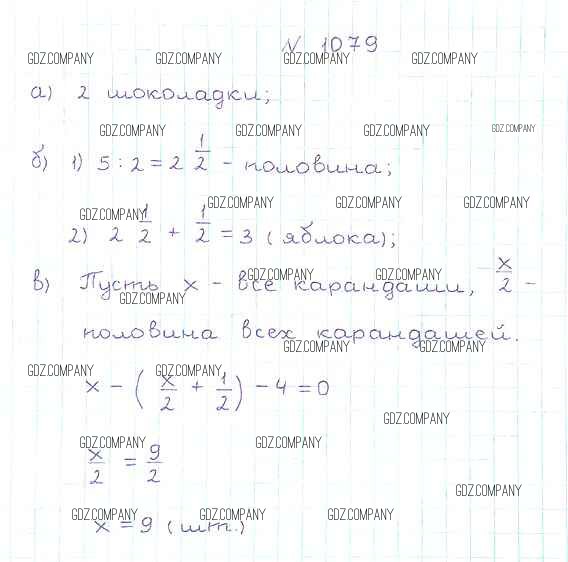 N 1079
GDZ.COMPANY GDZ.COMPANY GDZ.COMPANY GDZ.COMPANY
а) 2 шоколадки;
GDZ.COMPANY GDZ.COMPANY GDZ.COMPANY GDZ.COMPANY
б) 1) 5 : 2 = 2 1/2 - половина;
GDZ.COMPANY GDZ.COMPANY GDZ.COMPANY GDZ.COMPANY
2) 2 1/2 + 1/2 = 3 (яблока);
GDZ.COMPANY GDZ.COMPANY
в) Пусть x - все карандаши, x/2 -
GDZ.COMPANY
половина всех карандашей.
GDZ.COMPANY GDZ.COMPANY
GDZ.COMPANY GDZ.COMPANY
x - (x/2 + 1/2) - 4 = 0
GDZ.COMPANY
GDZ.COMPANY GDZ.COMPANY
x/2 = 9/2
GDZ.COMPANY
GDZ.COMPANY GDZ.COMPANY GDZ.COMPANY
x = 9 (шт.)